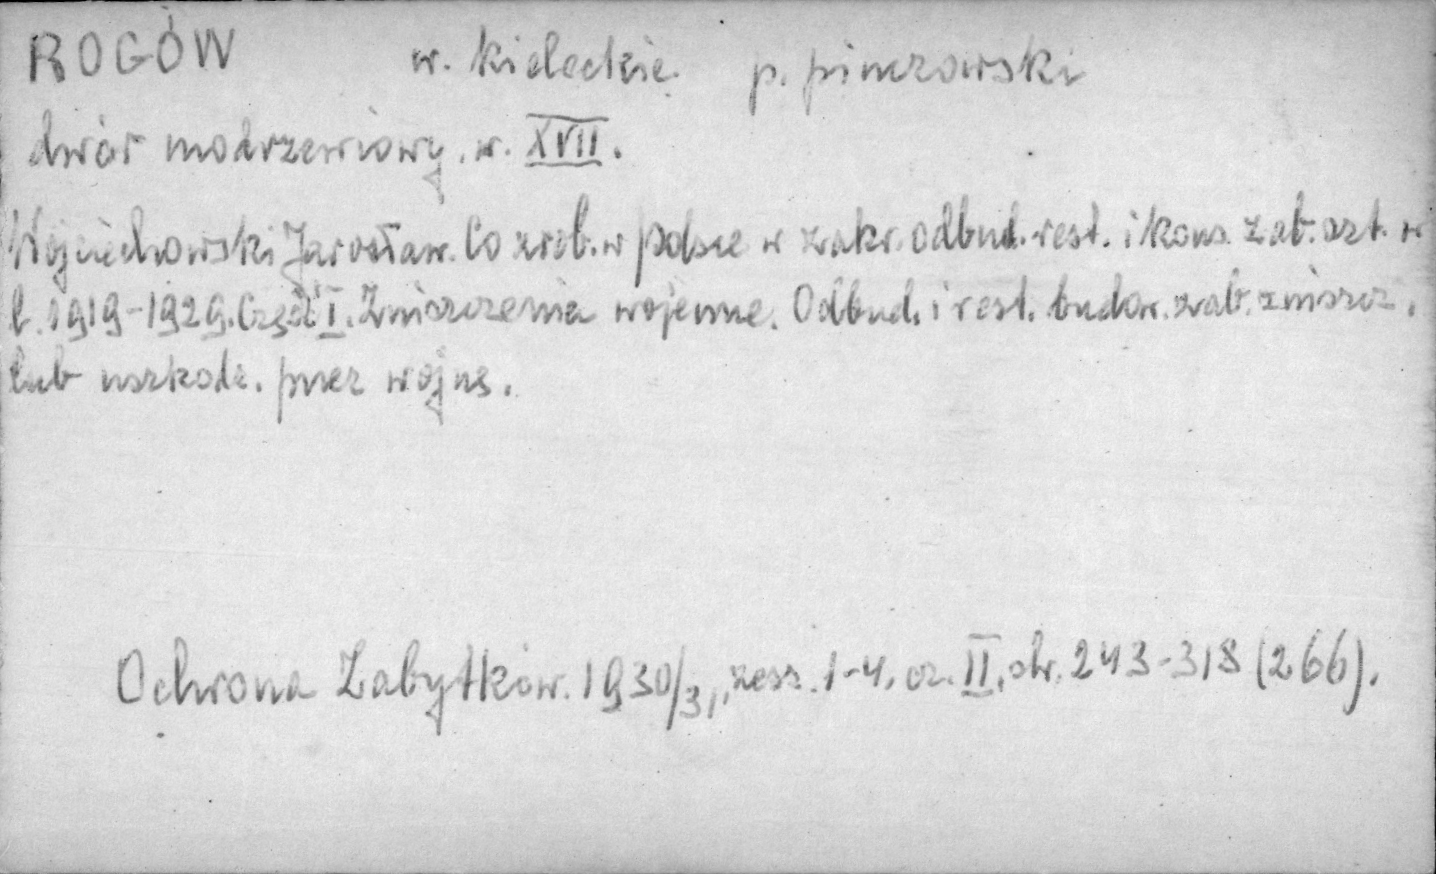 ROGÓW w. kieleckie p. pinczowski
dwór modrzewiowy. w. XVII.
Wojciechowski Jarosław. Co zrob. w Polsce w zakr. odbud. rest. i kons. zab. szt. w
l. 1919-1929. Część I. Zniszczenia wojenne. Odbud. i rest. budow. zab. zniszcz.
lub uszkodz. przez wojnę.
Ochrona Zabytków. 1930/31, zesz. 1-4. cz. II, str. 243-318 (266).